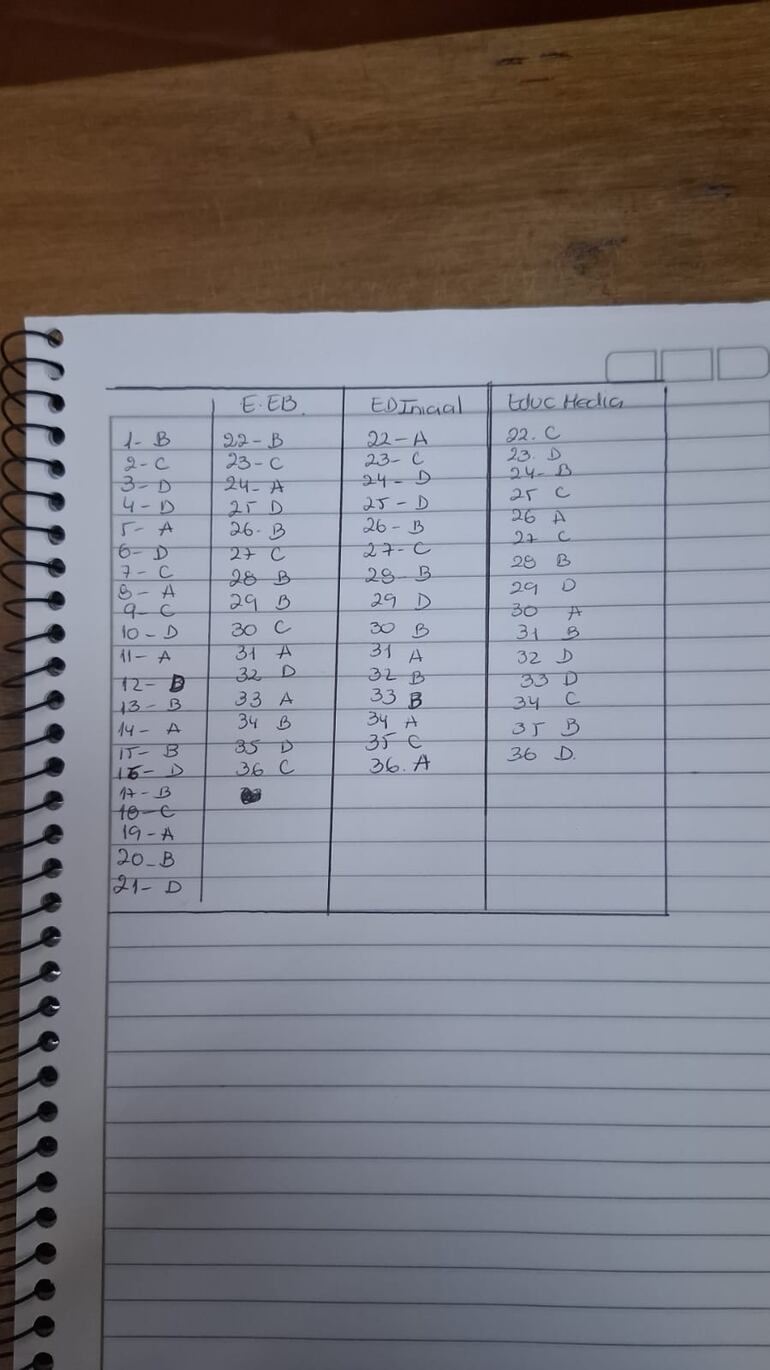 E.EB. EDInicial Educ Media
1- B 22- B 22- A 22. C
2- C 23- C 23- C 23. D
3- D 24- A 24- D 24- B
4- D 25 D 25- D 25 C
5- A 26- B 26- B 26 A
6- D 27 C 27- C 27 C
7- C 28 B 28- B 28 B
8- A 29 B 29 D 29 D
9- C 30 C 30 B 30 A
10- D 31 A 31 A 31 B
11- A 32 D 32 B 32 D
12- 33 A 33 B 33 D
13- B 34 B 34 A 34 C
14- A 35 D 35 C 35 B
15- B 36 C 36. A 36 D.
16- D
17- B
18- C
19- A
20- B
21- D